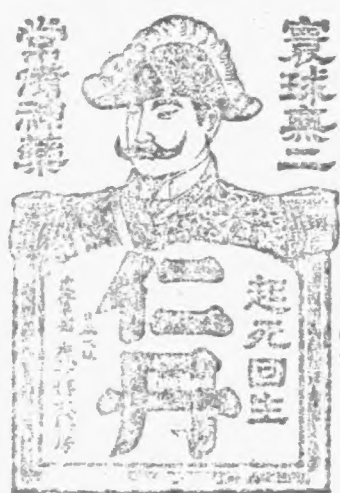 寰球無二
常備神藥
起死回生
仁丹